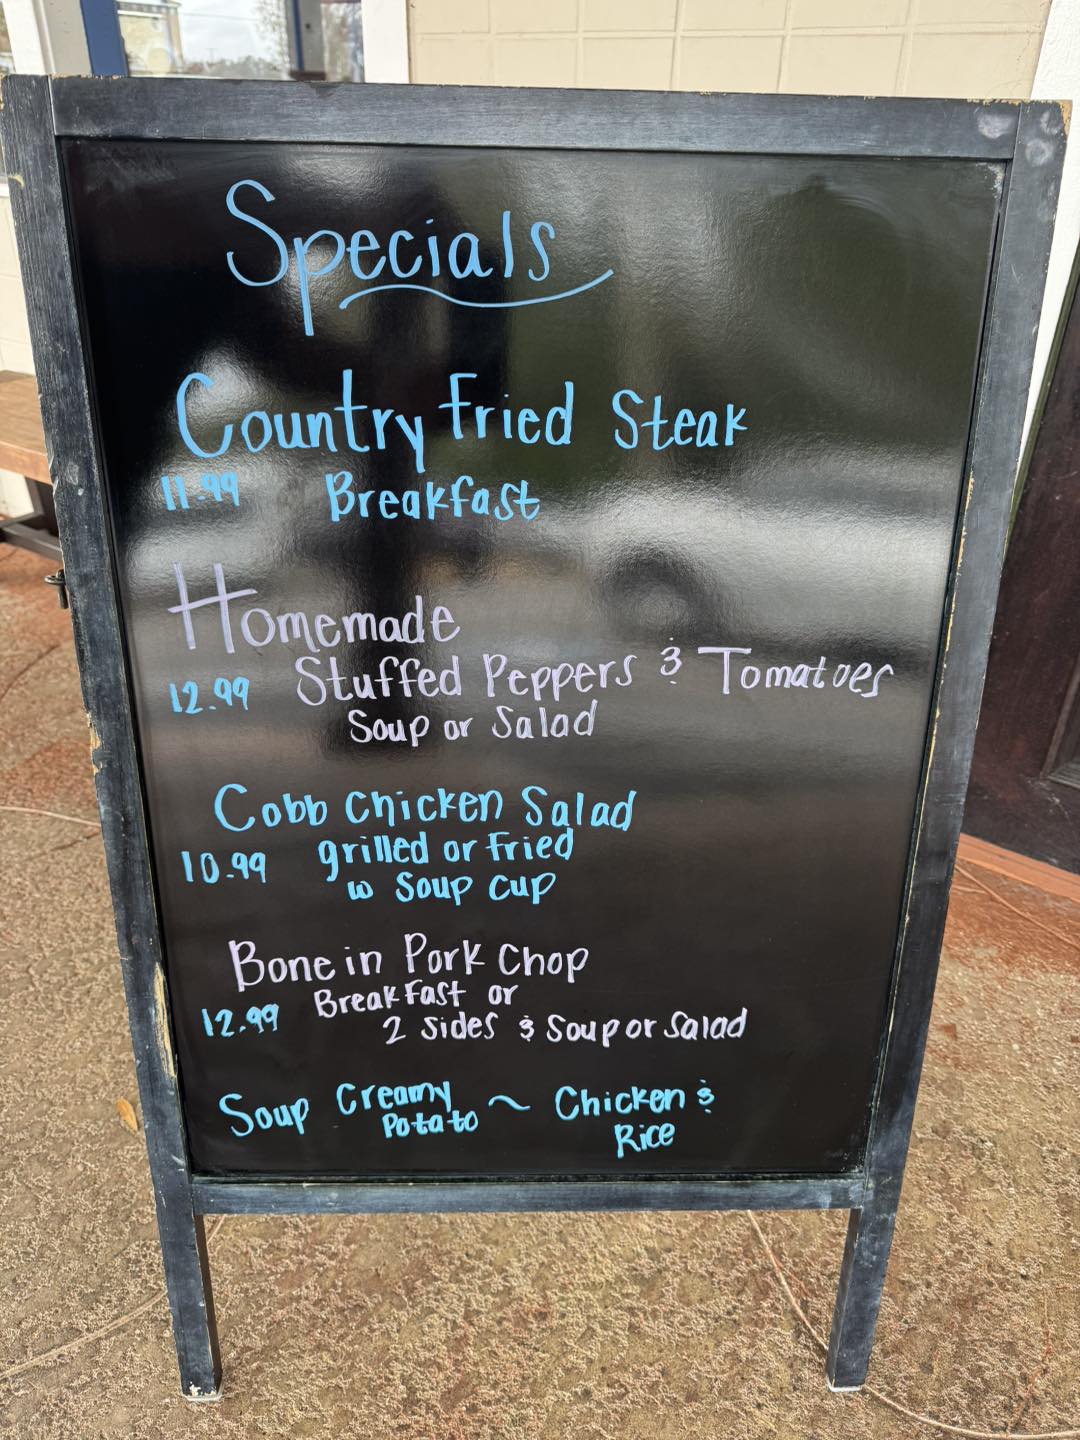 Specials
Country Fried Steak
11.99 Breakfast
Homemade
12.99 Stuffed Peppers & Tomatoes
Soup or Salad
Cobb Chicken Salad
10.99 grilled or fried
w Soup cup
Bone in Pork Chop
12.99 Breakfast or
2 sides & Soup or Salad
Soup Creamy Potato ~ Chicken &
Rice